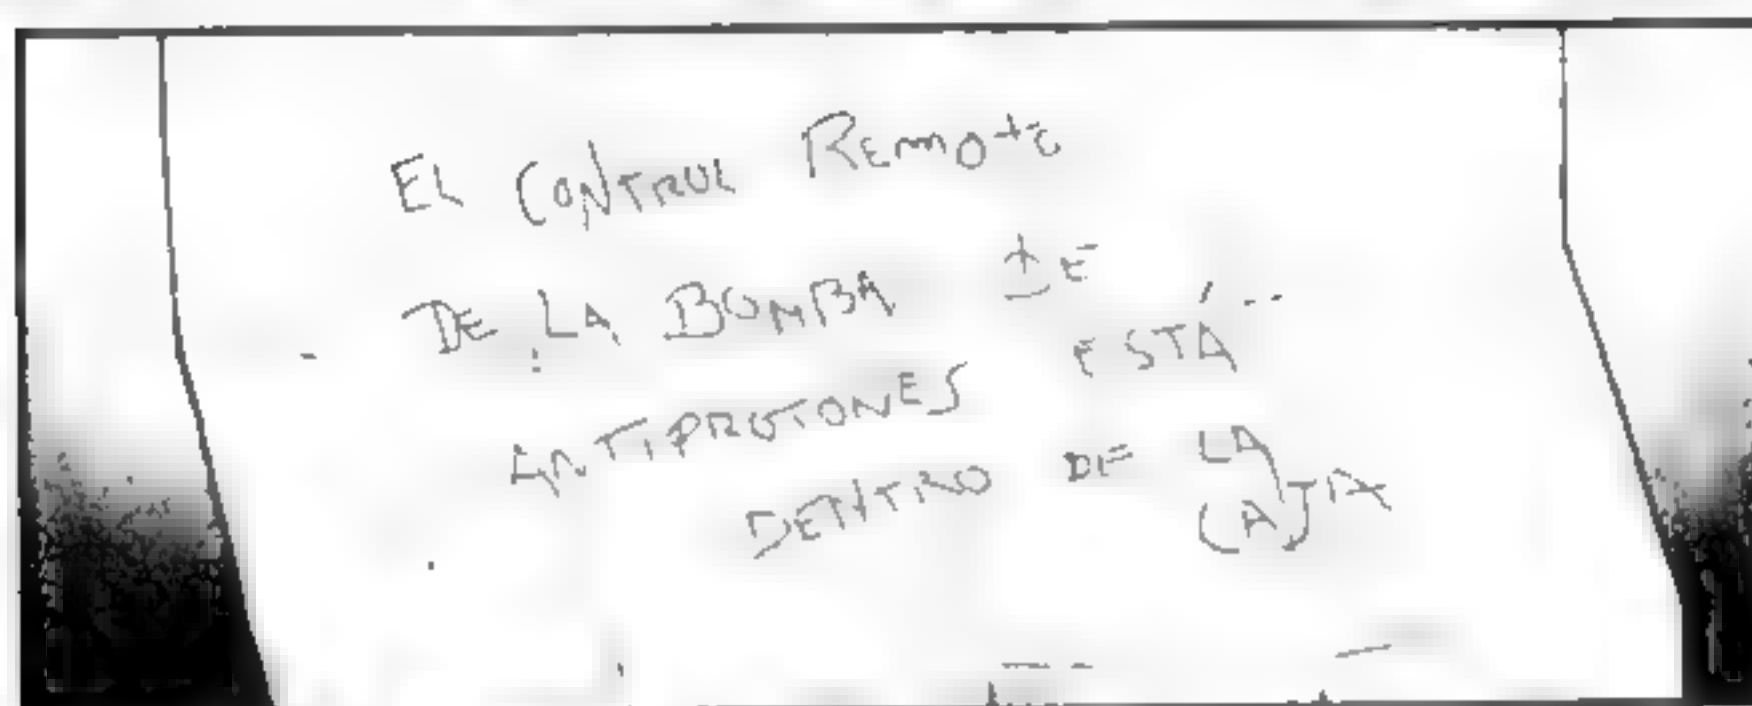 EL CONTROL REMOTO
DE LA BOMBA DE
ANTIPROTONES ESTÁ
DENTRO DE LA
CAJA